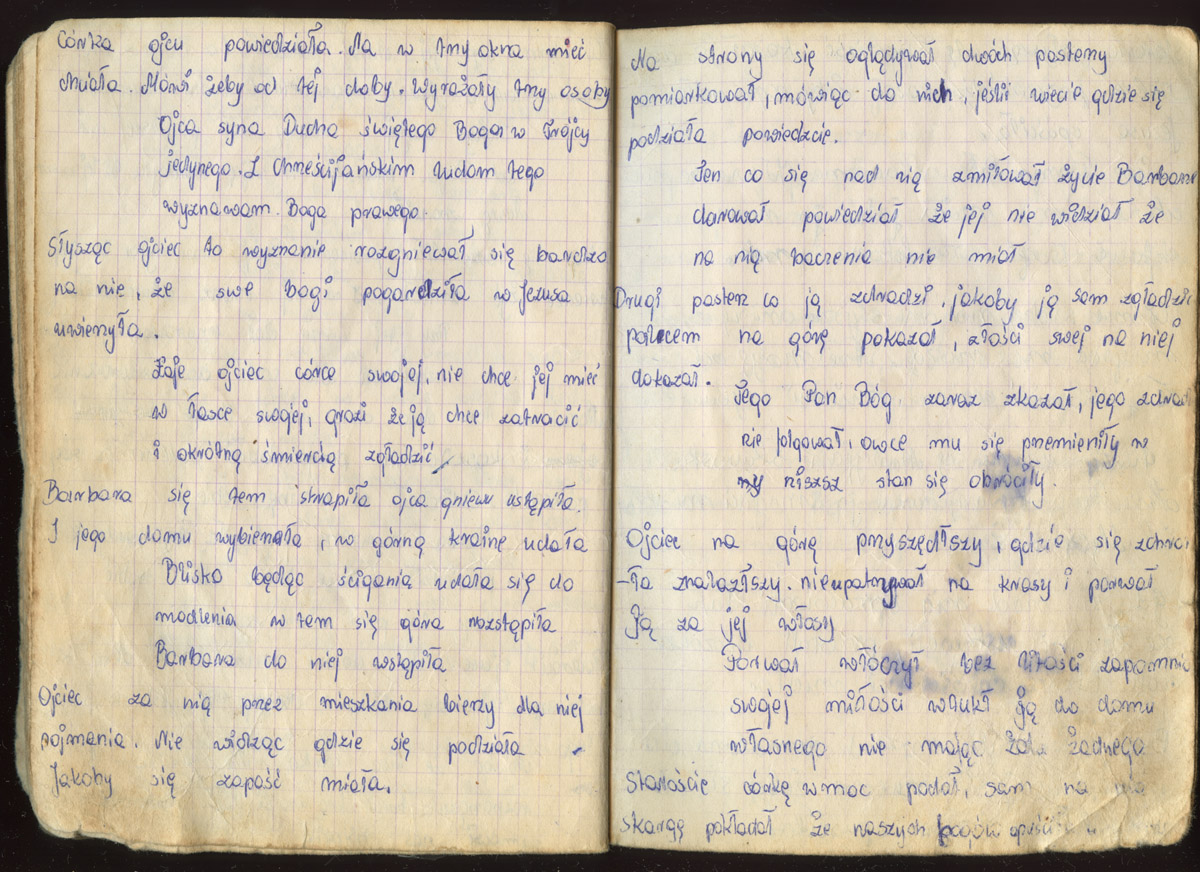 Córka ojcu powiedziała. Na w trzy okna mieć
chciała. Mówi żeby od tej doby. Wyrażały trzy osoby
Ojca syna Ducha świętego Boga w Trójcy
jedynego. I Chrześcijańskim ludom tego
wyznawam. Boga prawego.
Słysząc ojciec to wyznanie rozgniewał się bardzo
na nie, że swe bogi pogardziła w Jezusa
uwierzyła.
Łaje ojciec córce swojej, nie chce jej mieć
w łasce swojej, grozi że ją chce zatracić
i okrótną śmiercią zgładzić
Barbara się tem strapiła ojca gniewu ustąpiła.
I jego domu wybierała, w górną krainę udała
Blisko będąc ścigania udała się do
modlenia w tem się góra rozstąpiła
Barbara do niej wstąpiła
Ojciec za nią przez mieszkania bierzy dla niej
pojmania. Nie widząc gdzie się podziała
Jakoby się zapość miała.
Na strony się oglądywał dwóch pasterzy
pomiarkował, mówiąc do nich, jeśli wiecie gdzie się
podziała powiedzcie.
Ten co się nad nią zmiłował życie Barbarze
darował powiedział że jej nie widział że
na nią baczenia nie miał
Drugi pasterz co ją zdradzi, jakoby ją sam zgładzi
palcem na górę pokazał, złości swej na niej
dokazał.
Tego Pan Bóg zaraz skazał, jego
nie folgował, owce mu się przemieniły w
niższ stan się obróciły.
Ojciec na górę przyszedłszy, gdzie się schro
-ła znalazłszy. nieupatrywał na krasy i porwał
Ją za jej włosy
Porwał włóczył bez litości zapomniał
swojej miłości wlukł Ją do domu
własnego nie mając żalu żadnego
Staroście córkę w moc podał, sam na nią
skargę pokładał że naszych bogów